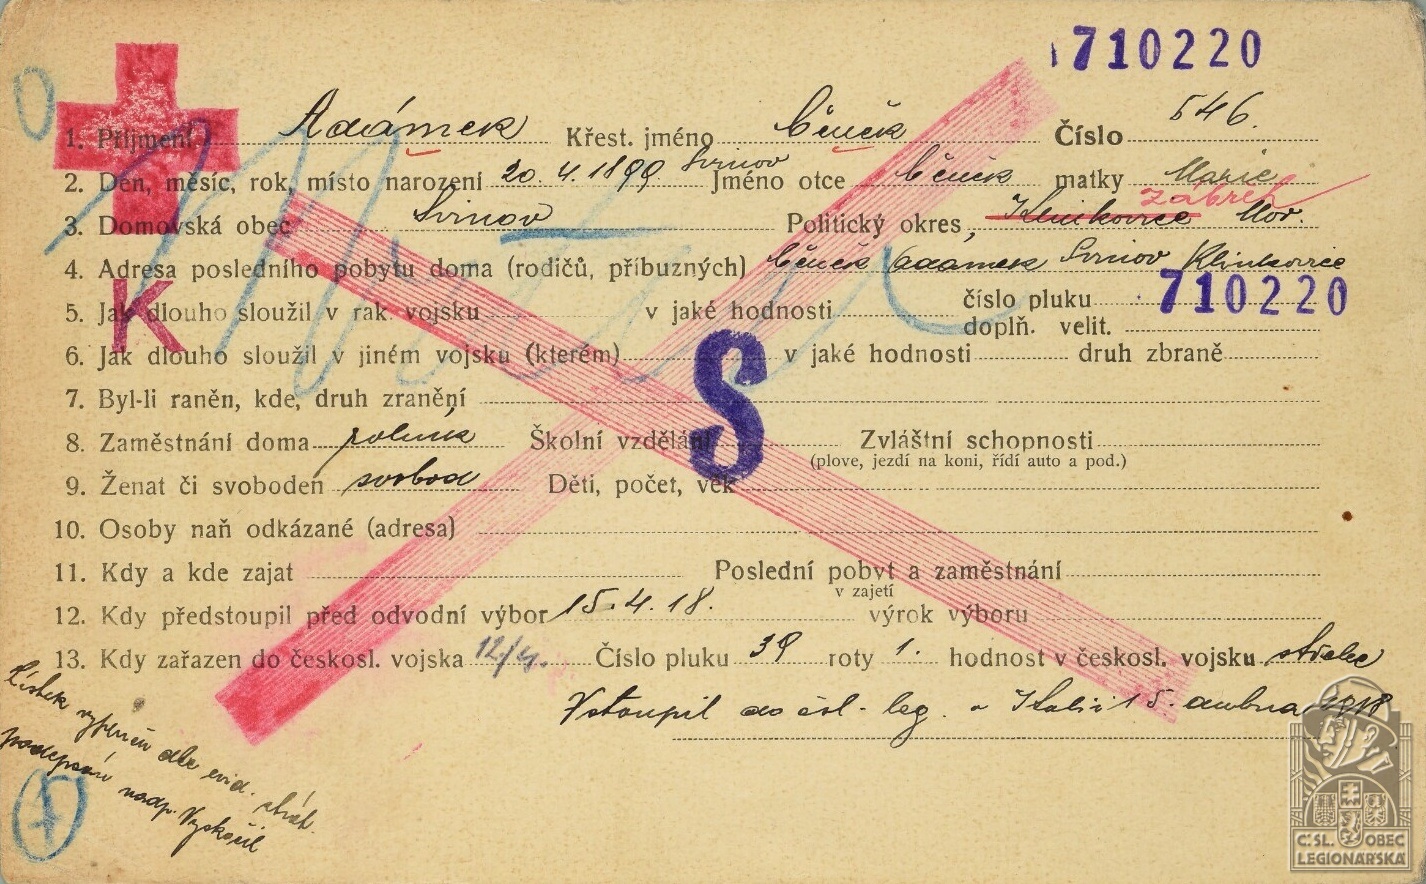 710220
1. Příjmení Adámek Křest. jméno Čeněk Číslo 546.
2. Den, měsíc, rok, místo narození 20. 4. 1899 Svinov Jméno otce Čeněk matky Marie
Zábřeh
3. Domovská obec Svinov Politický okres, Klimkovice Mor.
4. Adresa posledního pobytu doma (rodičů, příbuzných) Čeněk Adámek Svinov Klimkovice
5. Jak dlouho sloužil v rak. vojsku v jaké hodnosti číslo pluku doplň. velit. 710220
K
6. Jak dlouho sloužil v jiném vojsku (kterém) v jaké hodnosti druh zbraně
S
7. Byl-li raněn, kde, druh zranění
8. Zaměstnání doma rolník Školní vzdělání Zvláštní schopnosti
(plove, jezdí na koni, řídí auto a pod.)
9. Ženat či svoboden svobod Děti, počet, věk
10. Osoby naň odkázané (adresa)
11. Kdy a kde zajat Poslední pobyt a zaměstnání
v zajetí
12. Kdy předstoupil před odvodní výbor 15. 4. 18. výrok výboru
13. Kdy zařazen do českosl. vojska 12/4. Číslo pluku 39 roty 1. hodnost v českosl. vojsku střelec
Vstoupil do čsl. leg. v Italii 15. dubna 1918
Lístek vyplněn dle evid. ztrát.
podepsán nadp. Vyskočil
Č.SL. OBEC
LEGIONÁŘSKÁ